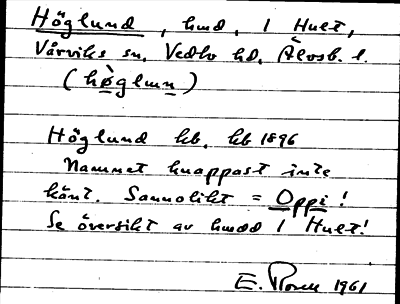 Höglund, hmd, 1 Hult,
Vårviks sn, Vedbo hd, Älvsb. l.
(hø̀glun)
Höglund hb. kb 1896
Namnet knappast inte
känt. Sannolikt = Oppi!
Se översikt av hmdd 1 Hult!
E. Rosen 1961